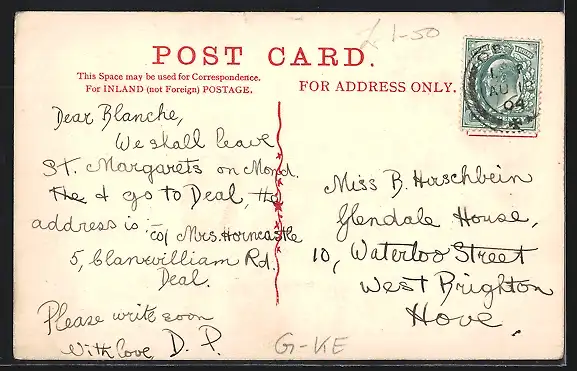 £1-50
POST CARD.
This Space may be used for Correspondence.
For INLAND (not Foreign) POSTAGE.
FOR ADDRESS ONLY.
AU 1
04
Dear Blanche,
We shall leave
St. Margarets on Mond.
The & go to Deal, the
address is :- c/o Mrs. Horncastle
5, Clanwilliam Rd.
Deal.
Please write soon
With love, D. P.
Miss B. Hirschbein
Glendale House,
10, Waterloo Street
West Brighton
Hove.
G-KE